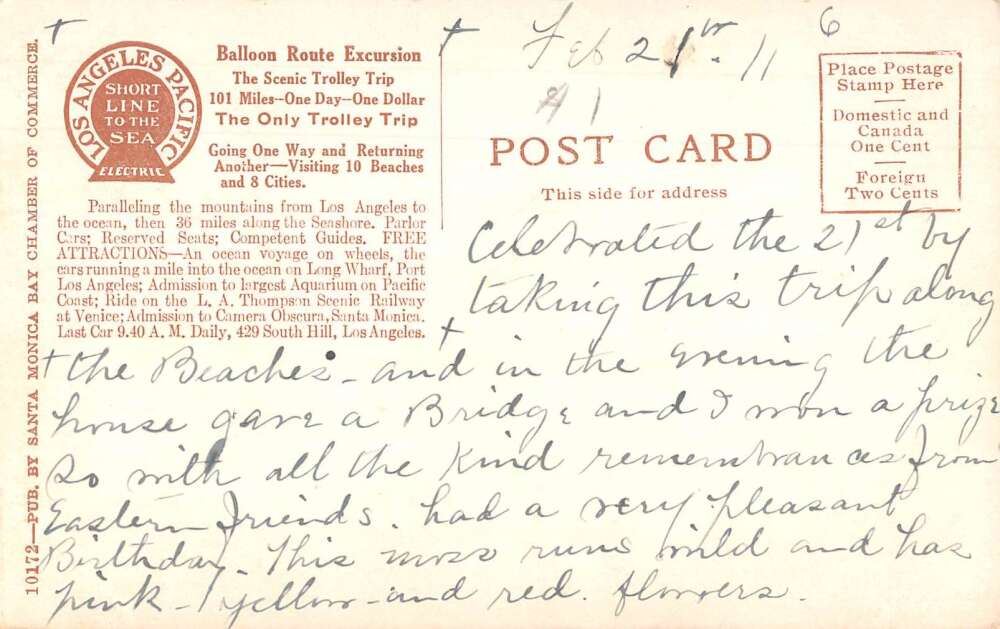 10172—PUB. BY SANTA MONICA BAY CHAMBER OF COMMERCE.
LOS ANGELES PACIFIC
SHORT
LINE
TO THE
SEA
ELECTRIC
Balloon Route Excursion
The Scenic Trolley Trip
101 Miles--One Day--One Dollar
The Only Trolley Trip
Going One Way and Returning
Another—Visiting 10 Beaches
and 8 Cities.
Paralleling the mountains from Los Angeles to
the ocean, then 36 miles along the Seashore. Parlor
Cars; Reserved Seats; Competent Guides. FREE
ATTRACTIONS—An ocean voyage on wheels, the
cars running a mile into the ocean on Long Wharf, Port
Los Angeles; Admission to largest Aquarium on Pacific
Coast; Ride on the L. A. Thompson Scenic Railway
at Venice; Admission to Camera Obscura, Santa Monica.
Last Car 9.40 A. M. Daily, 429 South Hill, Los Angeles.
6
Feb 21st. 11
41
POST CARD
This side for address
Place Postage
Stamp Here
Domestic and
Canada
One Cent
Foreign
Two Cents
Celebrated the 21st by
taking this trip along
the Beaches - and in the evening the
house gave a Bridge and I won a prize
so with all the kind remembrances from
Eastern friends. had a very pleasant
Birthday. This moss runs wild and has
pink - yellow - and red. flowers.